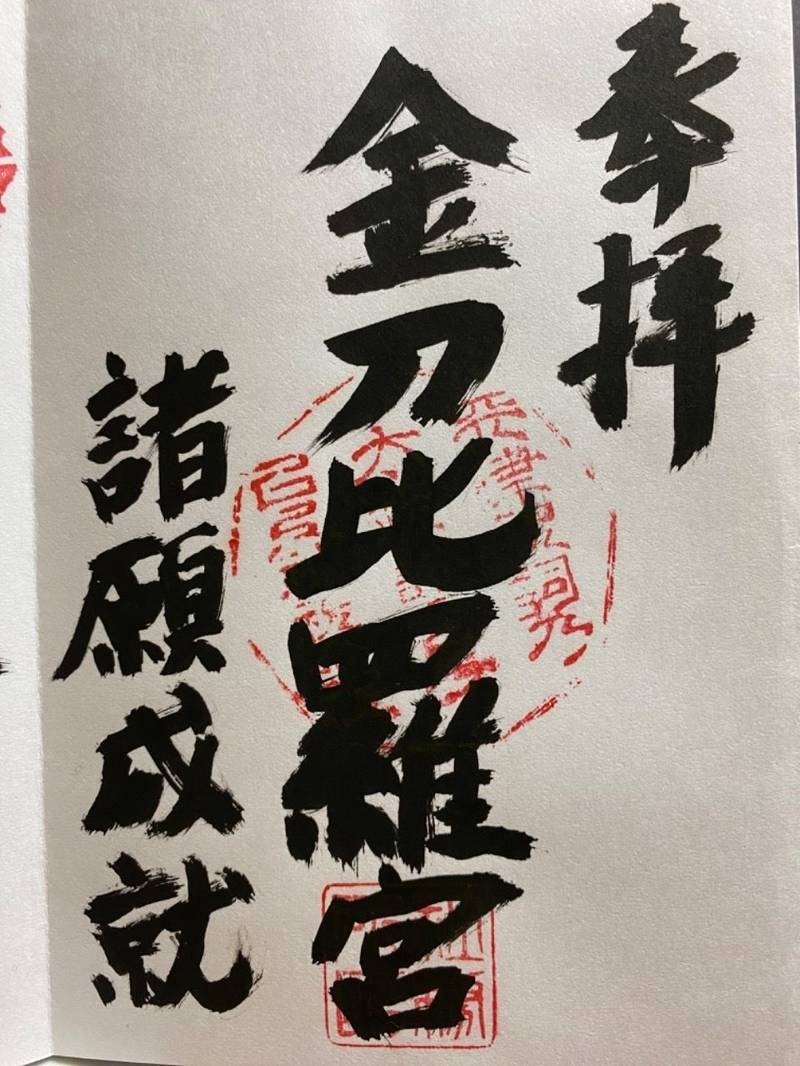 奉拝
金刀比羅宮
諸願成就